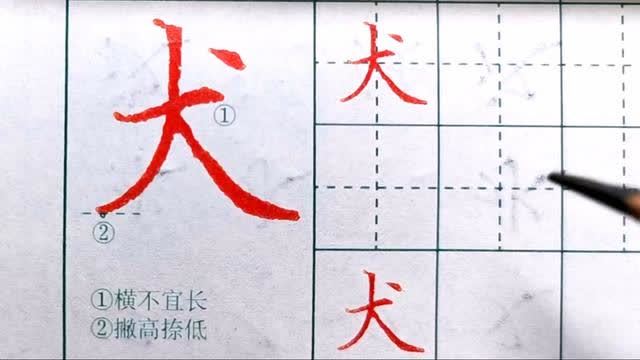 犬
①
②
①横不宜长
②撇高捺低
犬
犬